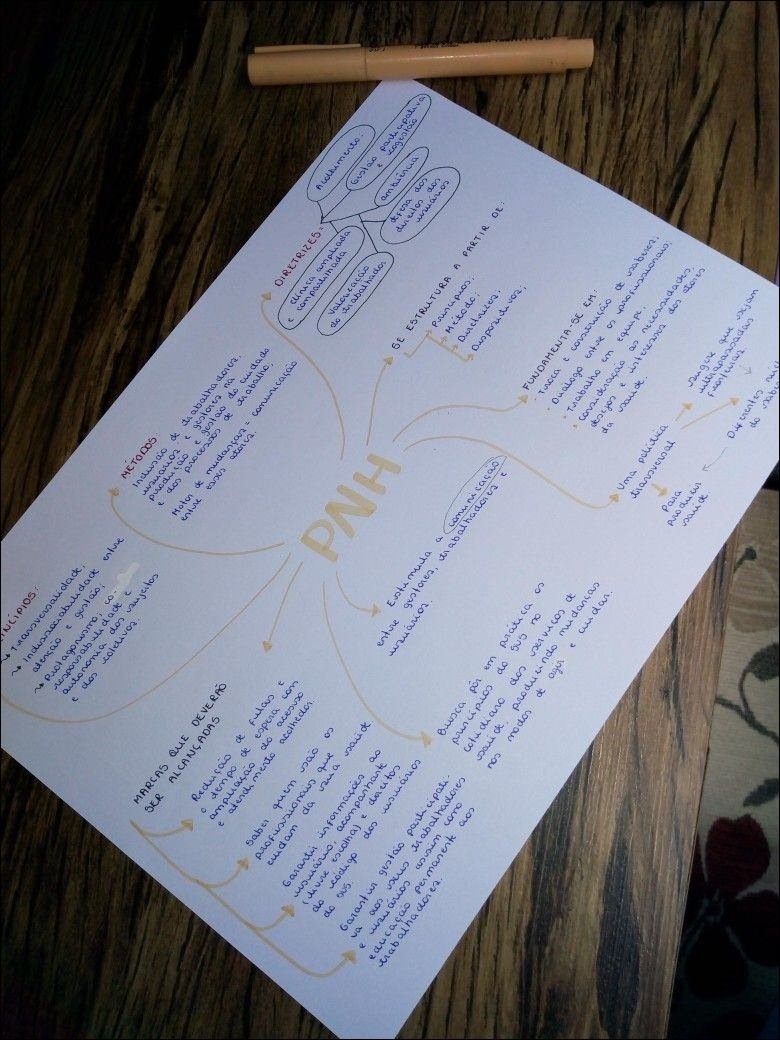 PNH
DIRETRIZES:
Acolhimento
Gestão participativa
e cogestão
ambiência
defesa dos
direitos dos
usuários
clínica ampliada
e compartilhada
Valorização
do trabalhador
SE ESTRUTURA A PARTIR DE:
Princípios;
Método;
Diretrizes;
Dispositivos;
FUNDAMENTA-SE EM:
· Troca e construção de saberes;
· Diálogo entre os profissionais;
· Trabalho em equipe;
· Consideração as necessidades,
desejos e interesses dos atores
da saúde
Uma política
transversal
sugere que sejam
ultrapassadas
fronteiras
Diferentes
do
Para
produzir
saúde
Estimula a comunicação
entre gestores, trabalhadores e
usuários.
Busca pôr em prática os
princípios do SUS no
cotidiano dos serviços de
saúde, produzindo mudanças
nos modos de agir e cuidar.
MARCAS QUE DEVERÃO
SER ALCANÇADAS
Redução de filas e
o tempo de espera com
ampliação do acesso
e atendimento acolhedor
Saber quem são os
profissionais que
cuidam da sua saúde
Garantir informações ao
usuário, acompanhante
(livre escolha) e direitos
do código dos usuários
do SUS.
Garantir gestão participati-
va aos seus trabalhadores
e usuários assim como
educação permanente aos
trabalhadores.
NCÍPIOS:
Transversalidade;
Indissociabilidade entre
atenção e gestão;
Protagonismo, co
responsabilidade e
autonomia dos sujeitos
e dos coletivos.
MÉTODOS:
Inclusão de trabalhadores,
usuários e gestores na
produção e gestão do cuidado
e dos processos de trabalho.
Motor de mudanças = comunicação
entre esses atores.